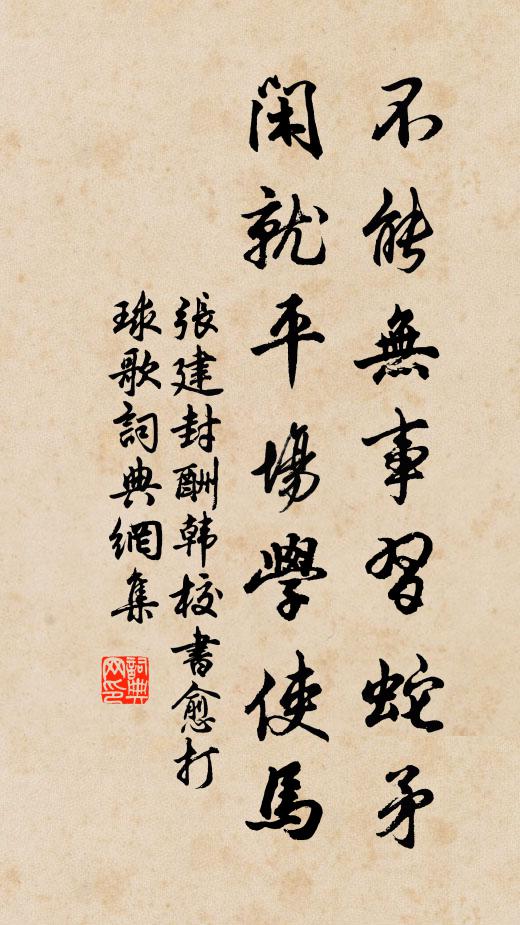 不能無事習蛇矛
閑就平場學使馬
張建封酬韩校書愈打
球歌詞典網集
詞典网印